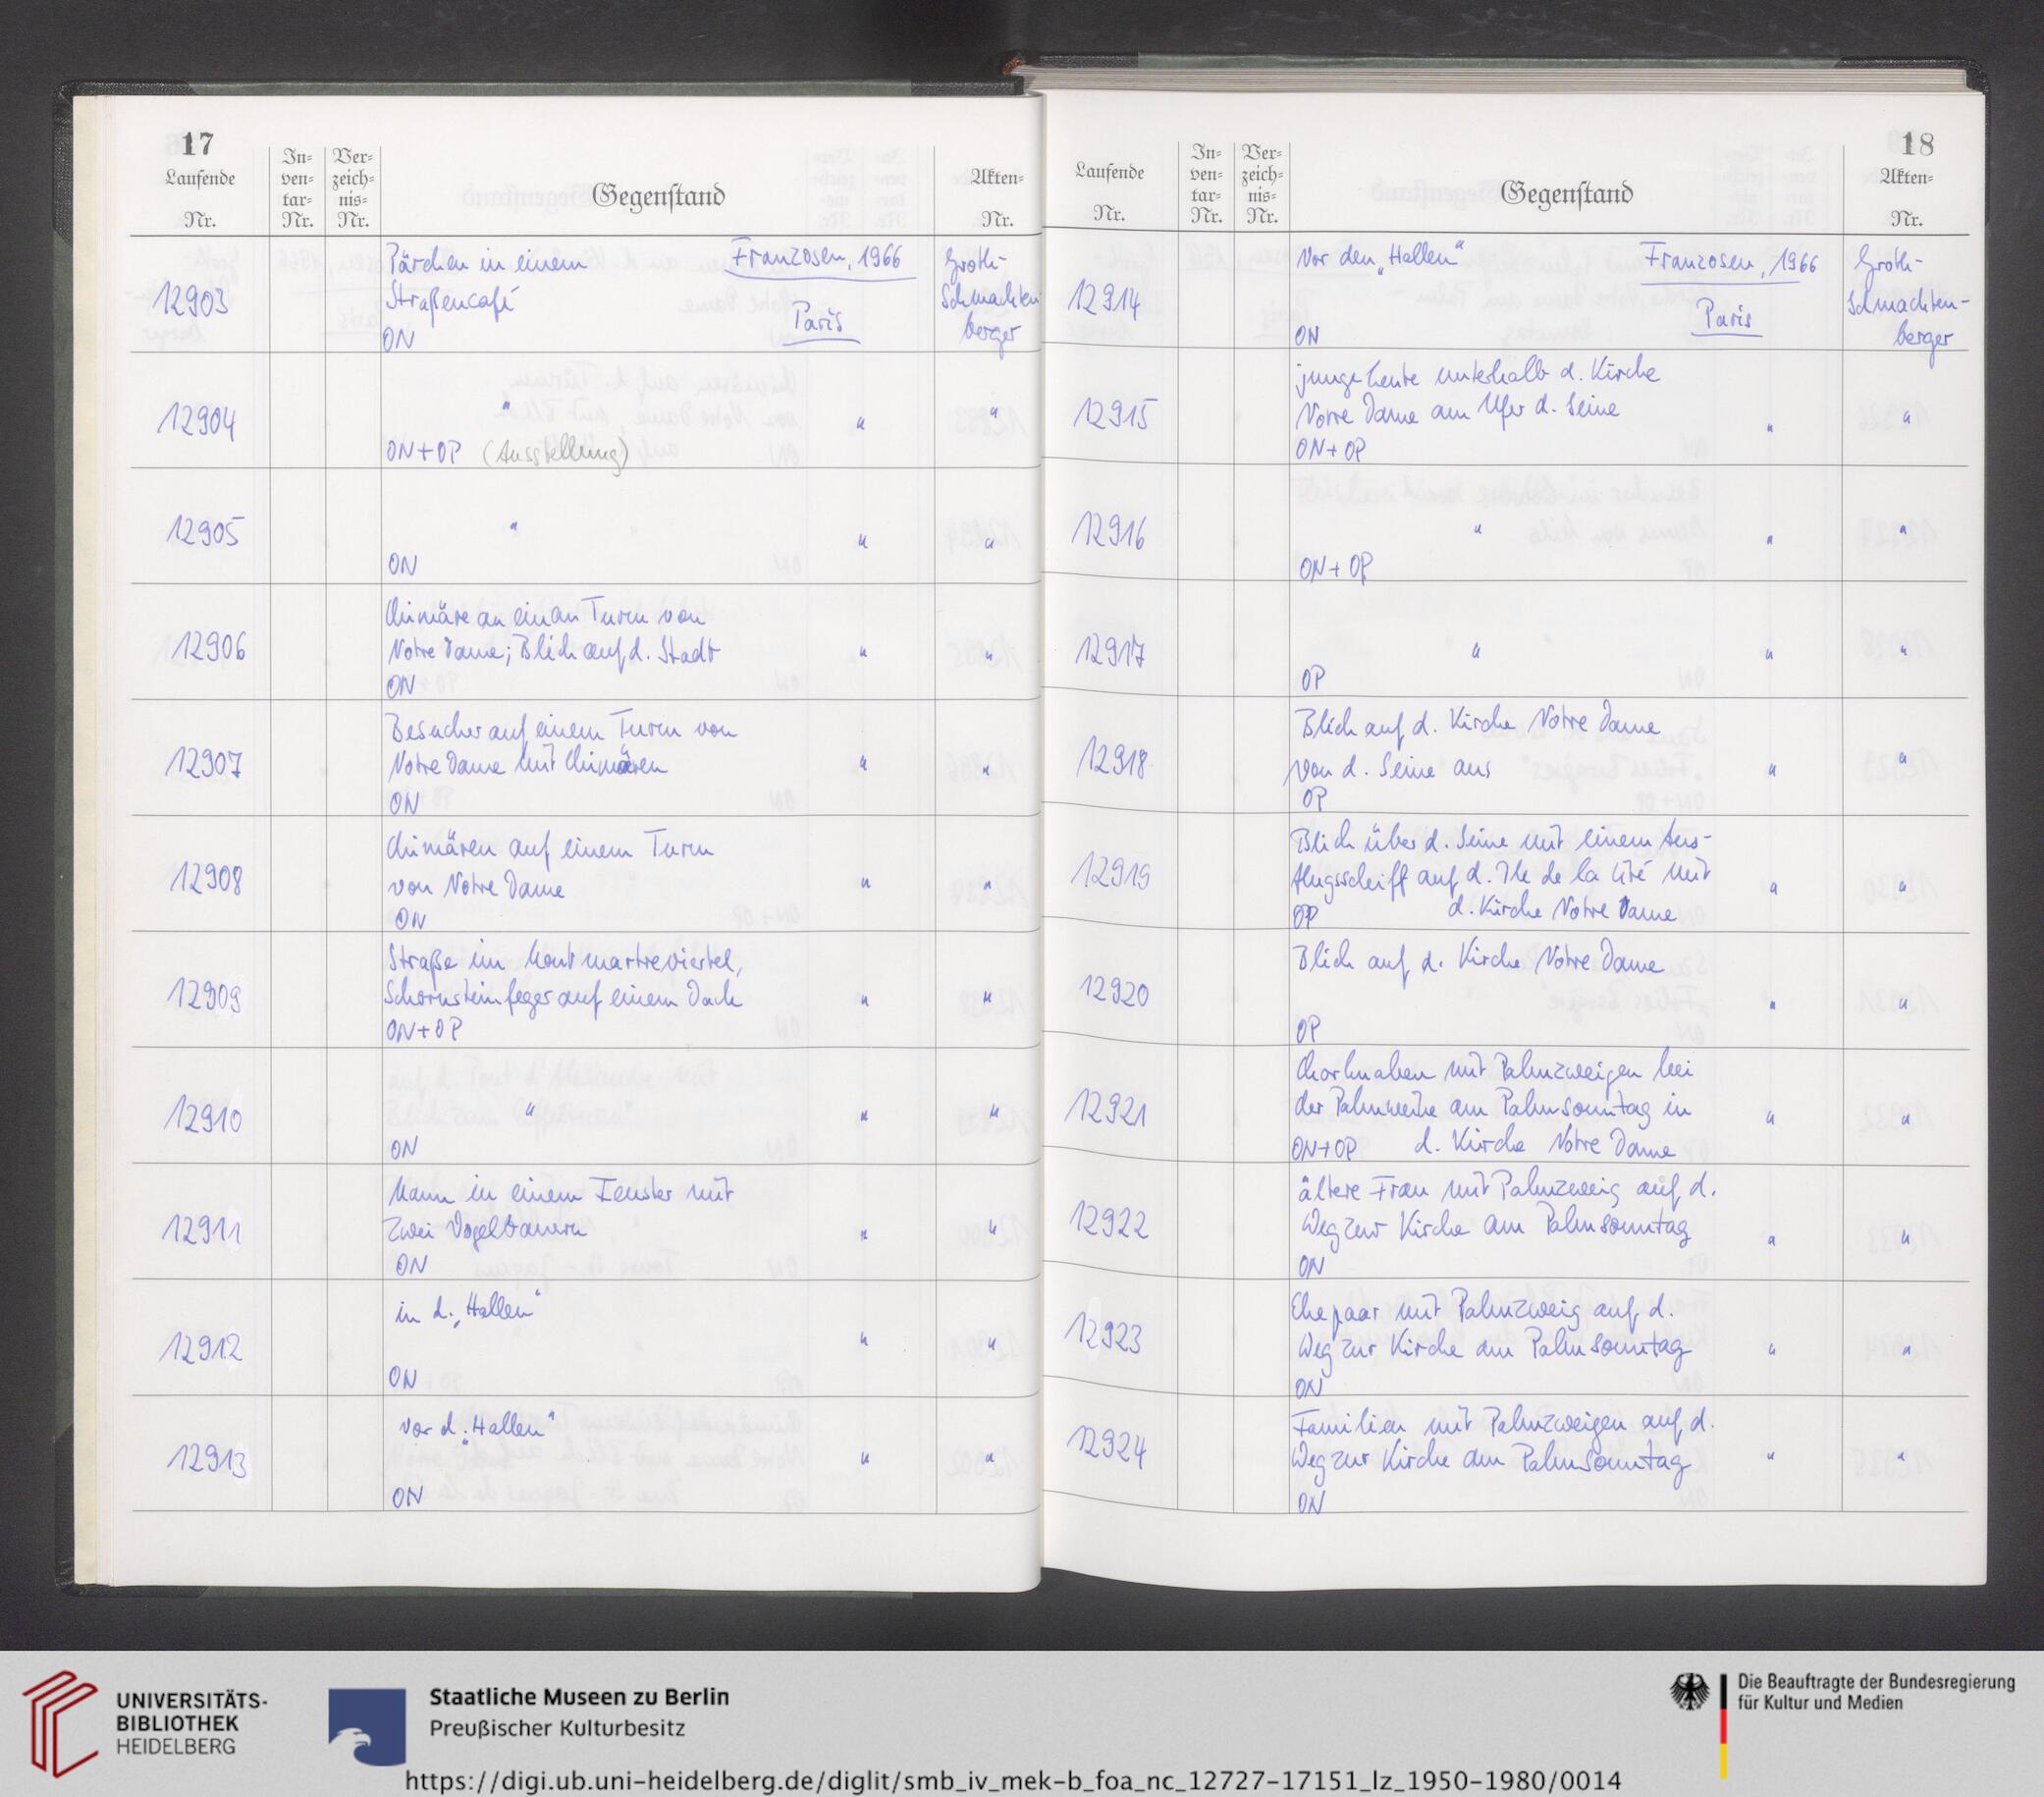 17
Laufende
Nr.
In-
ven-
tar-
Nr.
Ver-
zeich-
nis-
Nr.
Gegenstand
Akten-
Nr.
12903
Pärchen in einem
Straßencafé
ON
Franzosen, 1966
Paris
Groth-
Schmachten
berger
12904 " " "
ON+OP (Ausstellung)
12905 " " "
ON
12906
Chimäre an einan Turm von
Notre Dame; Blick auf d. Stadt " "
ON
12907
Besucher auf einem Turm von
Notre Dame mit Chimären " "
ON
12908
Chimären auf einem Turm
von Notre Dame " "
ON
12909
Straße im Montmartreviertel,
Schornsteinfeger auf einem Dach " "
ON+OP
12910 " " "
ON
12911
Mann in einem Fenster mit
zwei Vogelbauern " "
ON
12912
in d. „Hallen“ " "
ON
12913
vor d. „Hallen“ " "
ON
18
Laufende
Nr.
In-
ven-
tar-
Nr.
Ver-
zeich-
nis-
Nr.
Gegenstand
Akten-
Nr.
12914
Vor den „Hallen“
ON
Franzosen, 1966
Paris
Groth-
Schmachten-
berger
12915
junge Leute unterhalb d. Kirche
Notre Dame am Ufer d. Seine " "
ON+OP
12916 " " "
ON+OP
12917 " " "
OP
12918
Blick auf d. Kirche Notre Dame
von d. Seine aus " "
OP
12919
Blick über d. Seine mit einem Aus-
flugsschiff auf d. Ile de la Cité mit " "
OP d. Kirche Notre Dame
12920
Blick auf d. Kirche Notre Dame " "
OP
12921
Chorknaben mit Palmzweigen bei
der Palmweihe am Palmsonntag in " "
ON+OP d. Kirche Notre Dame
12922
ältere Frau mit Palmzweig auf d.
Weg zur Kirche am Palmsonntag " "
ON
12923
Ehepaar mit Palmzweig auf d.
Weg zur Kirche am Palmsonntag " "
ON
12924
Familien mit Palmzweigen auf d.
Weg zur Kirche am Palmsonntag " "
ON
UNIVERSITÄTS-
BIBLIOTHEK
HEIDELBERG
Staatliche Museen zu Berlin
Preußischer Kulturbesitz
Die Beauftragte der Bundesregierung
für Kultur und Medien
https://digi.ub.uni-heidelberg.de/diglit/smb_iv_mek-b_foa_nc_12727-17151_lz_1950-1980/0014